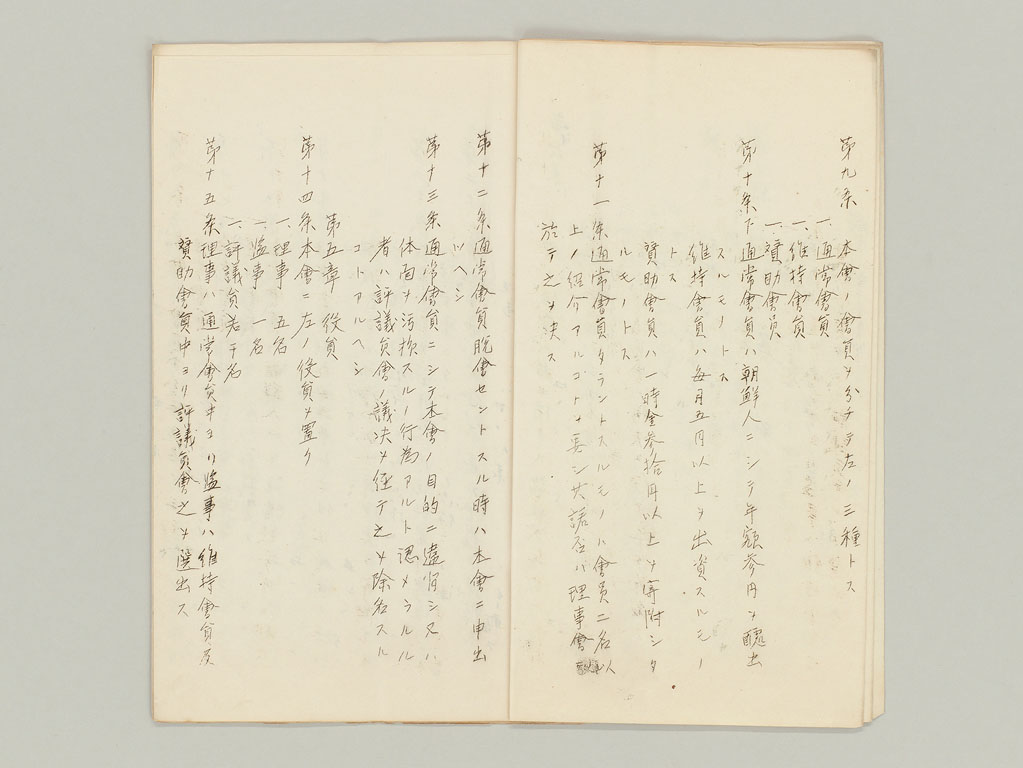 第九条
本會ノ會員ヲ分チテ左ノ三種トス
一、通常會員
一、維持會員
一、賛助會員
第十条 通常會員ハ朝鮮人ニシテ年額参円ヲ醵出
スルモノトス
維持會員ハ毎月五円以上ヲ出資スルモノ
トス
賛助會員ハ一時金参拾円以上ヲ寄附シタ
ルモノトス
第十一条 通常會員タラントスルモノハ會員二名以
上ノ紹介アルコトヲ要シ其諾否ハ理事會
於テ之ヲ决ス
第十二条 通常會員脱會セントスル時ハ本會ニ申出
ツヘシ
第十三条 通常會員ニシテ本會ノ目的ニ違背シ又ハ
体面ヲ汚損スルノ行為アルト認メラルル
者ハ評議員會ノ議决ヲ経テ之ヲ除名スル
コトアルヘシ
第五章 役員
第十四条 本會ニ左ノ役員ヲ置ク
一、理事 五名
一、監事 一名
一、評議員若干名
第十五条 理事ハ通常會員中ヨリ監事ハ維持會員及
賛助會員中ヨリ評議員會之ヲ選出ス